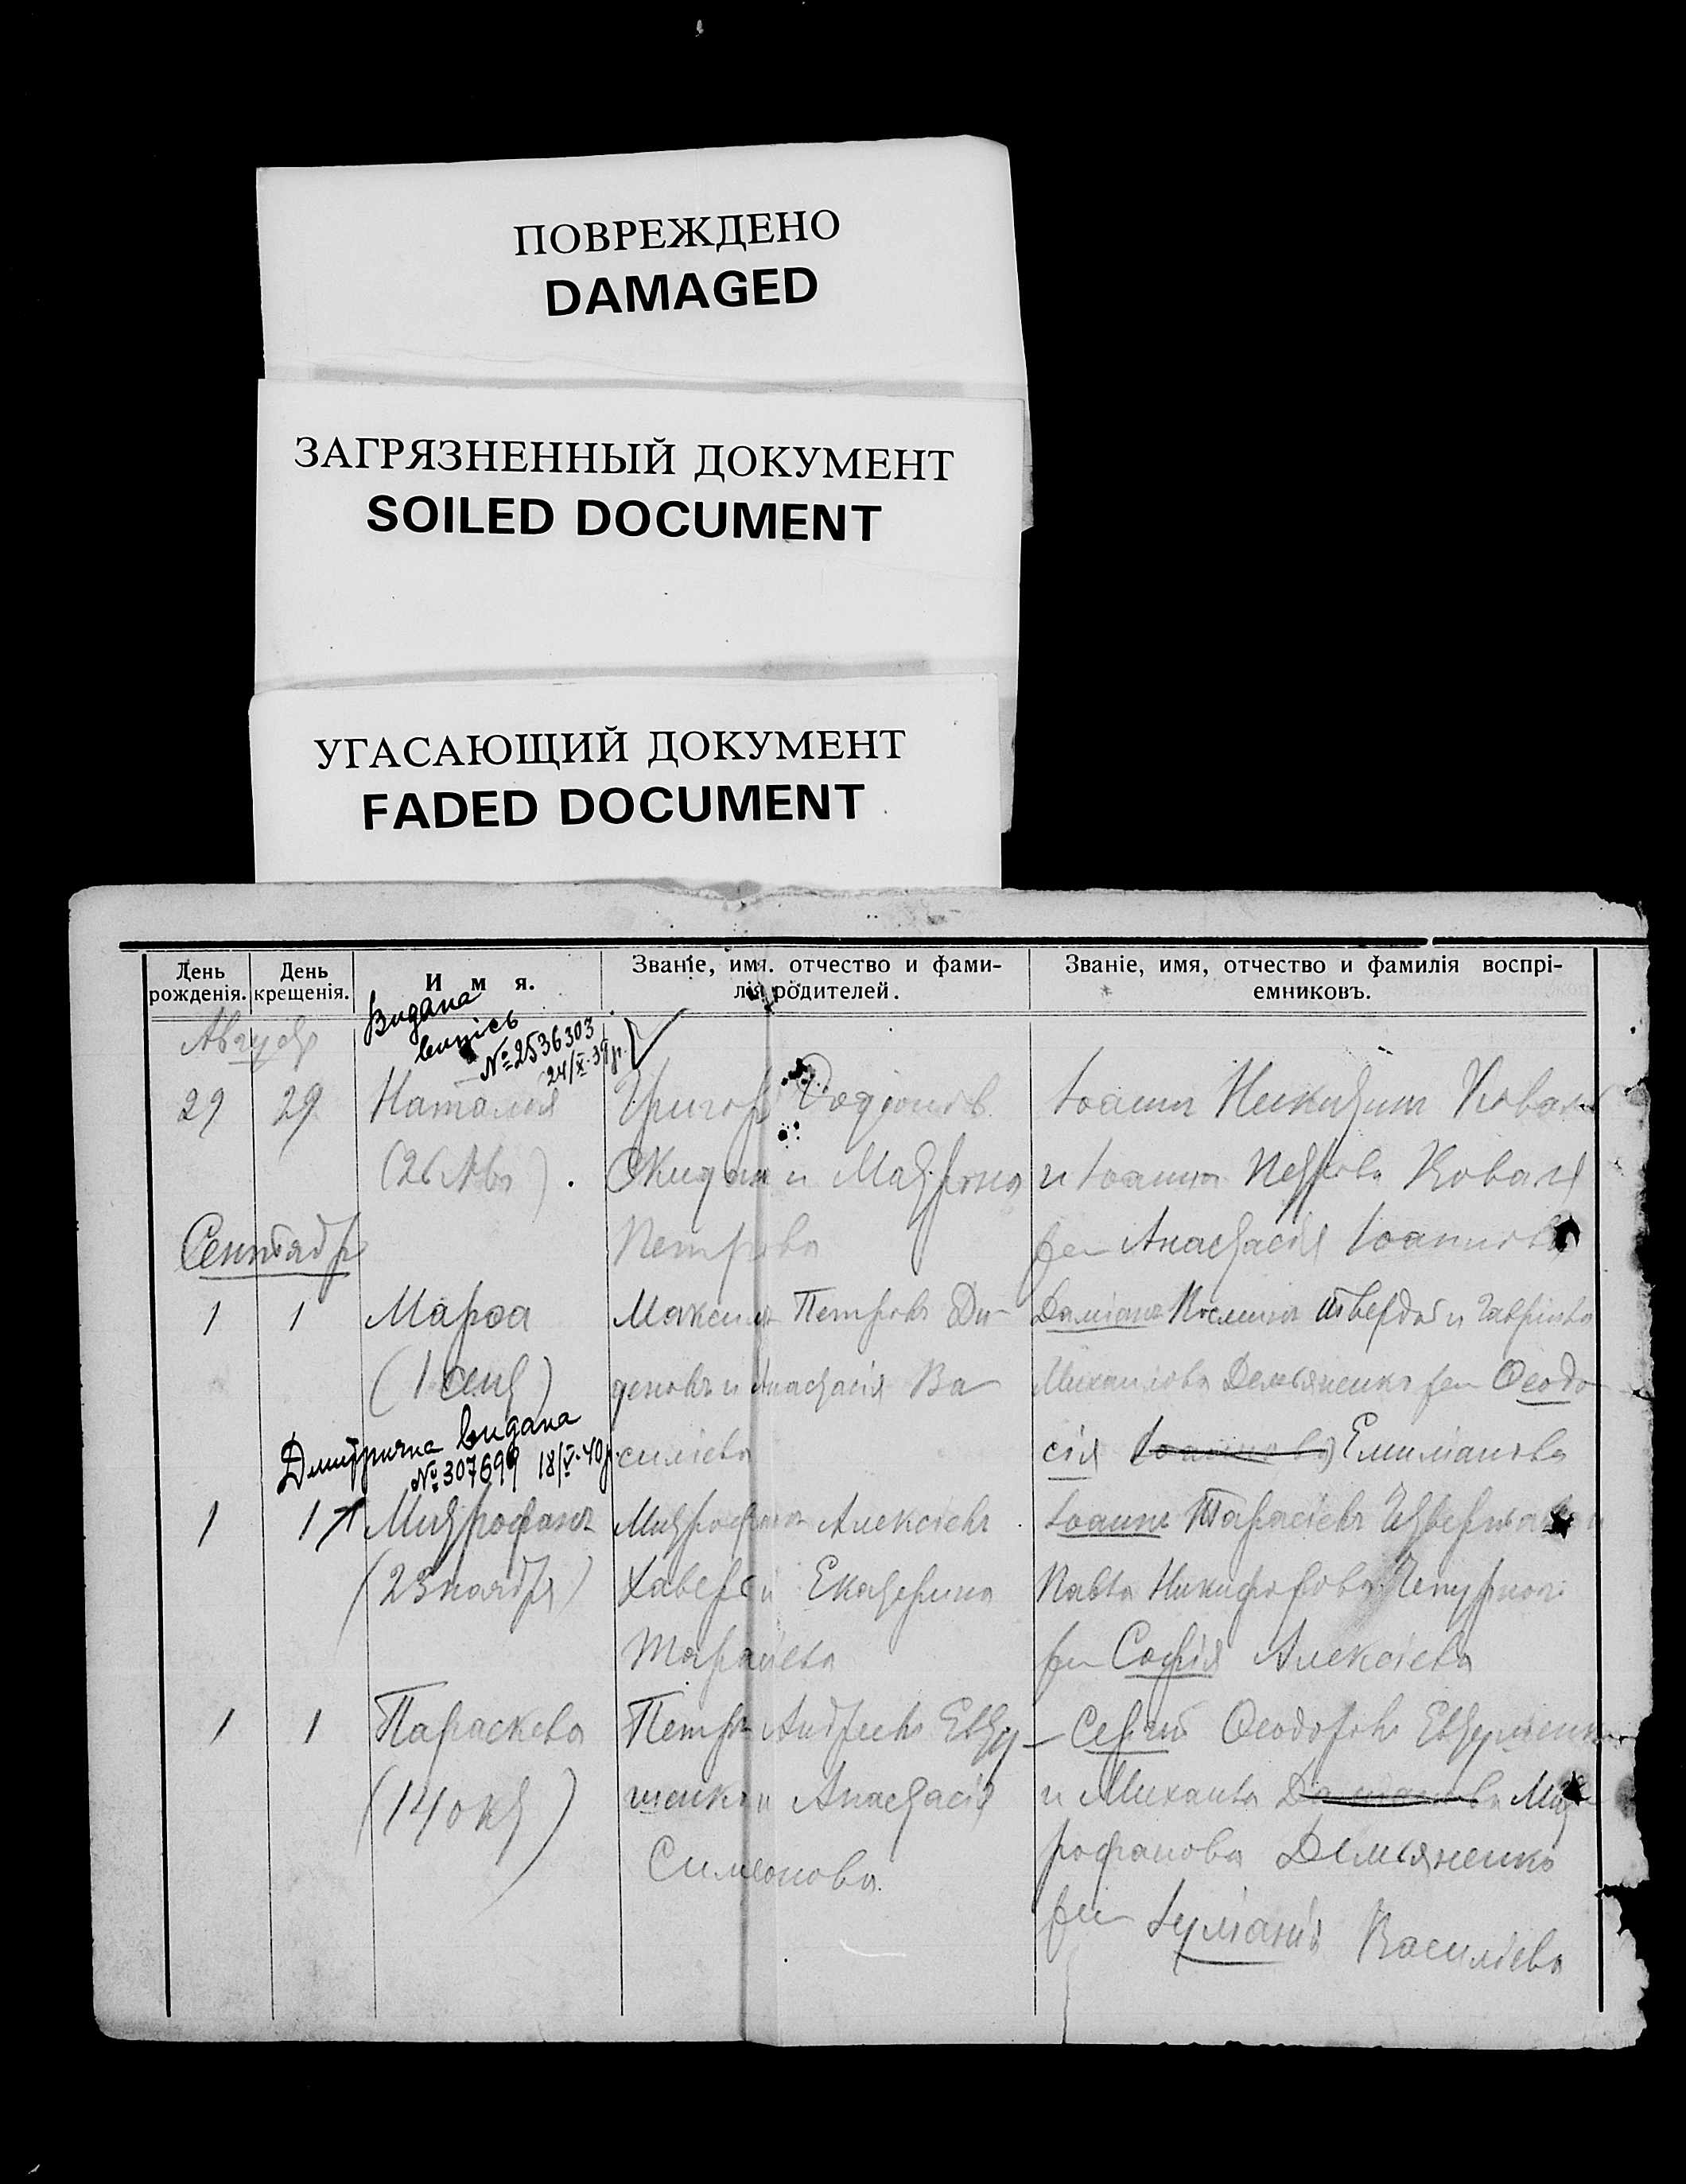 ПОВРЕЖДЕНО
DAMAGED
ЗАГРЯЗНЕННЫЙ ДОКУМЕНТ
SOILED DOCUMENT
УГАСАЮЩИЙ ДОКУМЕНТ
FADED DOCUMENT
День рожденія.
День крещенія.
И м я.
Званіе, имя. отчество и фами-
лія родителей.
Званіе, имя, отчество и фамилія воспрі-
емниковъ.
Август
Видана
випісь
№ 2536303
24/X-39р.
29 29 Наталія
(26 Авг).
Григор Родіонов
Скидан и Матрона
Петрова
Іоанн Никитин Ковал
и Іоанна Петрова Коваля
Анастасія Іоаннова
Сентябр
1 1 Марѳа
(1 сент)
Максим Петровъ Ди
деновъ и Анастасія Ва
силіева
Даміанъ Космин Твердой и Гавріила
Михаилова Демьяненко Ѳеодо
сія Емиліанова
видана
№ 307699 18/V-40р.
1 1 Митрофанъ
(23 ноября)
Митрофанъ Алексіевъ
Хавер и Екатерина
Тарасіева
Іоаннъ Тарасіевъ
Павла Никифорова
Софія Алексіева
1 1 Параскева
(14 окт)
Петръ Андреевъ Евту
шенко и Анастасія
Симеонова
Сергій Ѳеодоровъ Евтушенко
и Михаила Мит
рофанова Демьяненко
Іуліанія Василіева